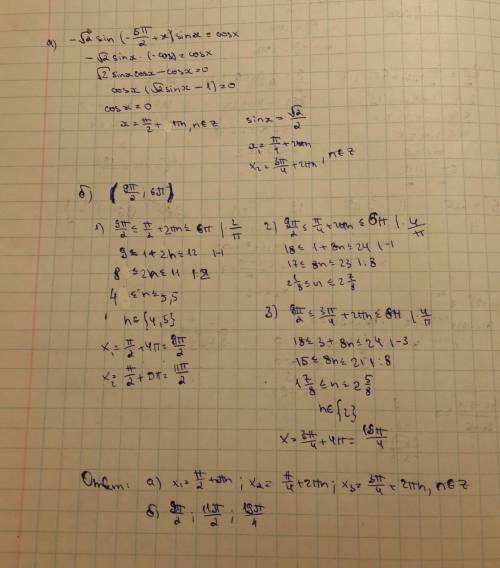 а) -√2 sin (-5π/2 + x) sinx = cosx
-√2 sinx · (-cos) = cosx
√2 sinx cosx - cosx = 0
cosx (√2 sinx - 1) = 0
cosx = 0
x = π/2 + πn, n∈Z
sinx = √2/2
x₁ = π/4 + 2πn
x₂ = 3π/4 + 2πn, n∈Z
б) (9π/2; 6π)
1) 9π/2 ≤ π/2 + πn ≤ 6π | 2/π
9 ≤ 1 + 2n ≤ 12 |-1
8 ≤ 2n ≤ 11 |:2
4 ≤ n ≤ 5,5
n∈{4,5}
x₁ = π/2 + 4π = 9π/2
x₂ = π/2 + 5π = 11π/2
2) 9π/2 ≤ π/4 + 2πn ≤ 6π | 4/π
18 ≤ 1 + 8n ≤ 24 |-1
17 ≤ 8n ≤ 23 |:8
2 1/8 ≤ n ≤ 2 7/8
3) 9π/2 ≤ 3π/4 + 2πn ≤ 6π | 4/π
18 ≤ 3 + 8n ≤ 24 |-3
15 ≤ 8n ≤ 21 |:8
1 7/8 ≤ n ≤ 2 5/8
n∈{2}
x = 3π/4 + 4π = 19π/4
Ответ: а) x₁ = π/2 + πn; x₂ = π/4 + 2πn; x₃ = 3π/4 + 2πn, n∈Z
б) 9π/2; 11π/2; 19π/4